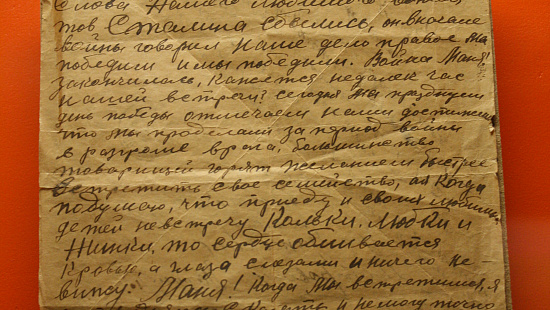 Слова нашего любимого
тов Сталина сбылись, он вначале
войны говорил наше дело правое мы
победим и мы победили. Война Маня!
закончилась, кажется недалек час
нашей встречи? сегодня мы празднуем
день победы отмечаем наши достижения
что мы проделали за период войны
в разгроме врага, большинство
товарищей горят желанием быстрее
встретить свое семейство, а я когда
подумаю, что приеду и своих любимых
детей невстречу Кольки, Любки и
Нинки, то сердце обливается
кровью, а глаза слезами и ничего не-
вижу. Маня! Когда мы встретимся, я
и немогу точно